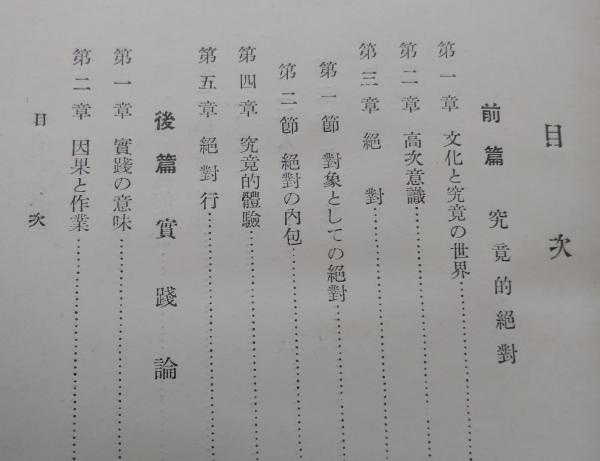 目次
前篇 究竟的絕對
第一章 文化と究竟の世界
第二章 高次意識
第三章 絕對
第一節 對象としての絕對
第二節 絕對の內包
第四章 究竟的體驗
第五章 絕對行
後篇 實踐論
第一章 實踐の意味
第二章 因果と作業
目次